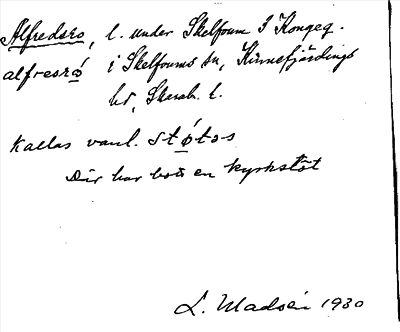 Alfredsro, l. under Skelfoum 3 Kongeg.
alfresró i Skelfoums sn, Kinnefjärdings
hd, Skarab. l.
Kallas vanl. støtɘs
Där har bott en kyrkstöt
L. Madsén 1930